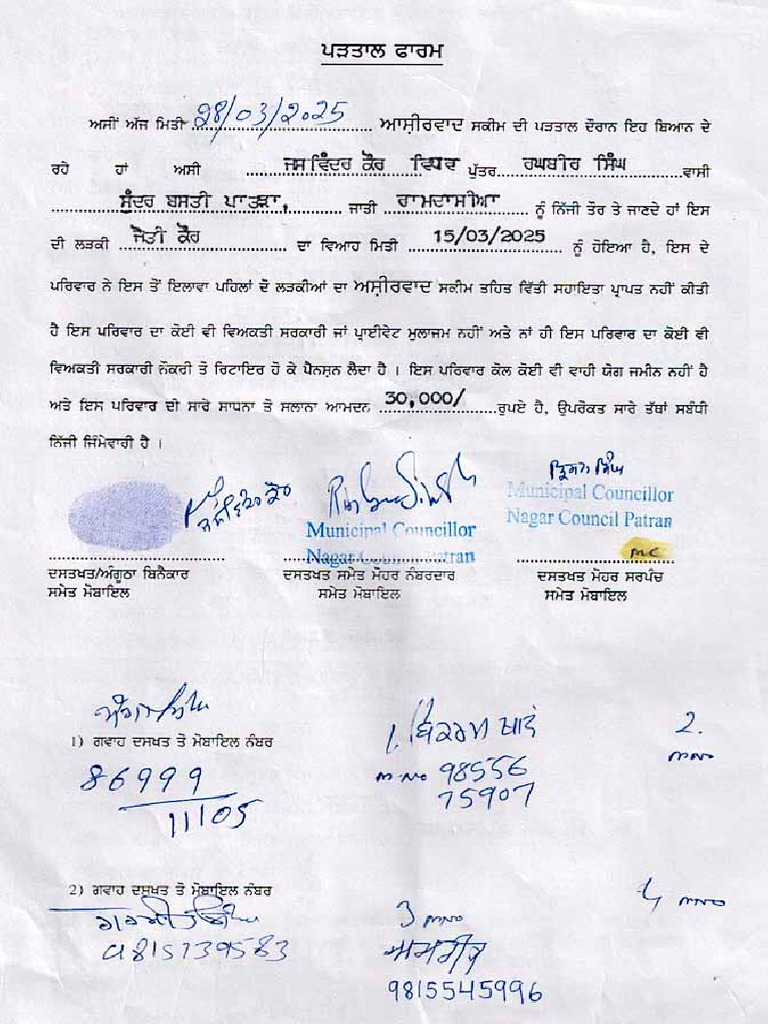 ਪੜਤਾਲ ਫਾਰਮ
ਅਸੀਂ ਅੱਜ ਮਿਤੀ 28/03/2025 ਆਸ਼ੀਰਵਾਦ ਸਕੀਮ ਦੀ ਪੜਤਾਲ ਦੌਰਾਨ ਇਹ ਬਿਆਨ ਦੇ
ਰਹੇ ਹਾਂ ਅਸੀ ਜਸਵਿੰਦਰ ਕੌਰ ਵਿਧਵ ਪੁੱਤਰ ਰਘਬੀਰ ਸਿੰਘ ਵਾਸੀ
ਸੁੰਦਰ ਬਸਤੀ ਪਾਤੜਾ, ਜਾਤੀ ਰਾਮਦਾਸੀਆ ਨੂੰ ਨਿੱਜੀ ਤੌਰ ਤੇ ਜਾਣਦੇ ਹਾਂ ਇਸ
ਦੀ ਲੜਕੀ ਜੋਤੀ ਕੌਰ ਦਾ ਵਿਆਹ ਮਿਤੀ 15/03/2025 ਨੂੰ ਹੋਇਆ ਹੈ, ਇਸ ਦੇ
ਪਰਿਵਾਰ ਨੇ ਇਸ ਤੋਂ ਇਲਾਵਾ ਪਹਿਲਾਂ ਦੋ ਲੜਕੀਆਂ ਦਾ ਅਸ਼ੀਰਵਾਦ ਸਕੀਮ ਤਹਿਤ ਵਿੱਤੀ ਸਹਾਇਤਾ ਪ੍ਰਾਪਤ ਨਹੀਂ ਕੀਤੀ
ਹੈ ਇਸ ਪਰਿਵਾਰ ਦਾ ਕੋਈ ਵੀ ਵਿਅਕਤੀ ਸਰਕਾਰੀ ਜਾਂ ਪ੍ਰਾਈਵੇਟ ਮੁਲਾਜਮ ਨਹੀਂ ਅਤੇ ਨਾਂ ਹੀ ਇਸ ਪਰਿਵਾਰ ਦਾ ਕੋਈ ਵੀ
ਵਿਅਕਤੀ ਸਰਕਾਰੀ ਨੌਕਰੀ ਤੋ ਰਿਟਾਇਰ ਹੋ ਕੇ ਪੈਨਸ਼ਨ ਲੈਦਾ ਹੈ । ਇਸ ਪਰਿਵਾਰ ਕੋਲ ਕੋਈ ਵੀ ਵਾਹੀ ਯੋਗ ਜਮੀਨ ਨਹੀਂ ਹੈ
ਅਤੇ ਇਸ ਪਰਿਵਾਰ ਦੀ ਸਾਰੇ ਸਾਧਨਾ ਤੋ ਸਲਾਨਾ ਆਮਦਨ 30,000/ ਰੁਪਏ ਹੈ, ਉਪਰੋਕਤ ਸਾਰੇ ਤੱਥਾਂ ਸਬੰਧੀ
ਨਿੱਜੀ ਜਿੰਮੇਵਾਰੀ ਹੈ ।
ਜਸਵਿੰਦਰ ਕੌਰ
Municipal Councillor
Nagar Council Patran
Municipal Councillor
Nagar Council Patran
MC
ਦਸਤਖਤ/ਅੰਗੂਠਾ ਬਿਨੈਕਾਰ
ਸਮੇਤ ਮੋਬਾਇਲ
ਦਸਤਖਤ ਸਮੇਤ ਮੋਹਰ ਨੰਬਰਦਾਰ
ਸਮੇਤ ਮੋਬਾਇਲ
ਦਸਤਖਤ ਮੋਹਰ ਸਰਪੰਚ
ਸਮੇਤ ਮੋਬਾਇਲ
1) ਗਵਾਹ ਦਸਖਤ ਤੋ ਮੋਬਾਇਲ ਨੰਬਰ
86999
11105
1. ਬਿਕਰਮ
m.no 98556
75907
2.
m.no
2) ਗਵਾਹ ਦਸਖਤ ਤੋ ਮੋਬਾਇਲ ਨੰਬਰ
9815739583
3 m.no
9815545996
4 m.no